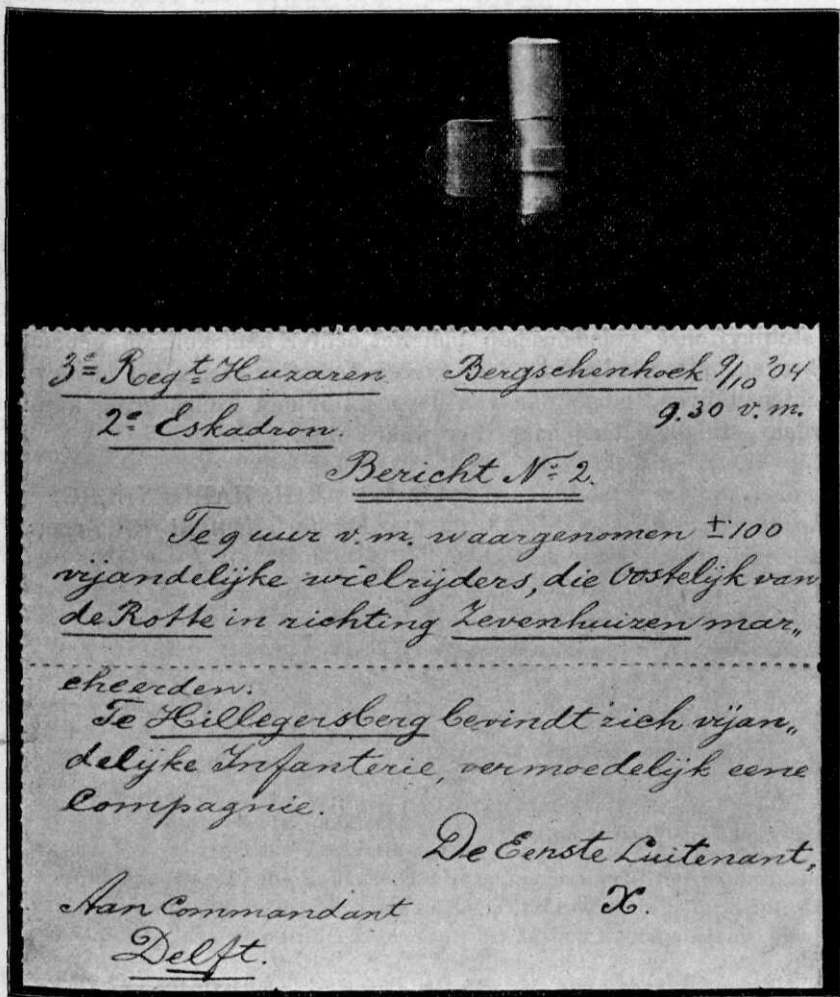 3e Regt Huzaren
Bergschenhoek 9/10 '04
9.30 v.m.
2e Eskadron.
Bericht No 2.
Te 9 uur v.m. waargenomen ± 100
vijandelijke wielrijders, die Oostelijk van
de Rotte in richting Zevenhuizen mar„
cheerden.
Te Hillegersberg bevindt zich vijan„
delijke Infanterie, vermoedelijk eene
Compagnie.
De Eerste Luitenant,
X.
Aan Commandant
Delft.